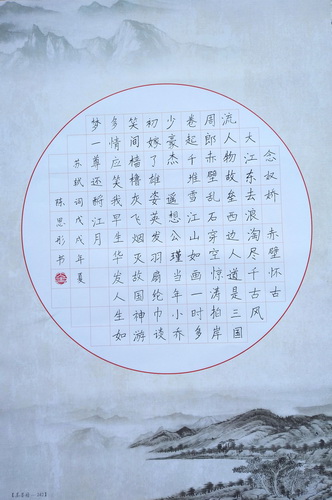 念奴娇 赤壁怀古
大江东去浪淘尽千古风
流人物故垒西边人道是三国
周郎赤壁乱石穿空惊涛拍岸
卷起千堆雪江山如画一时多
少豪杰 遥想公瑾当年小乔
初嫁了雄姿英发羽扇纶巾谈
笑间樯橹灰飞烟灭故国神游
多情应笑我早生华发人生如
梦一尊还酹江月
苏轼词戊戌年夏
陈思彤书